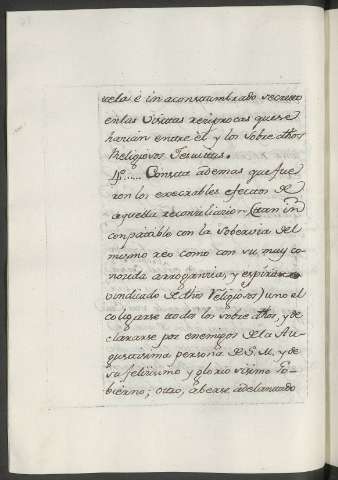 tela è inaconstumbrado secreto
en las Visitas reciprocas que se
hacian entre èl y los sobre dthos
Religiosos Jesuitas.
15..... Consta ademas que fue
ron los execrables efectos de
aquella reconciliacion (tan in
conpatible con la Soberbia del
mismo reo como con su muy co-
nocida arrogancia, y espiritu
vindicado de dhos Religiosos) uno el
coligarse todos los sobre dthos, y de
clararse por enemigos de la Au-
gustissima persona de S. M. y de
su felicisimo y glorio sisimo Go-
bierno; otro, aberse adelantado